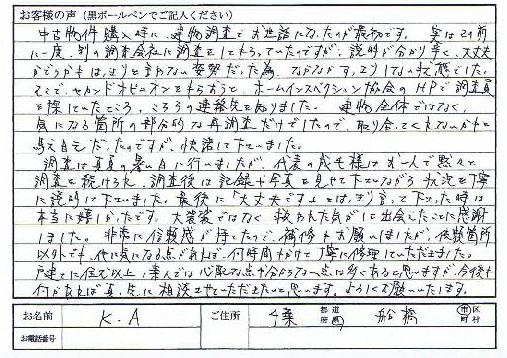 お客様の声（黒ボールペンでご記入ください）
中古物件購入時に、建物調査でお世話になったが最初です。実は2ヶ月前
に一度、別の調査会社に調査をしてもらっていたのですが、説明が分かり辛く、大丈夫
かどうかもはっきりと言わない姿勢だった為、なかなかすっきりしない状態でした。
そこで、セカンドオピニオンをもらおうと、ホームインスペクション協会のHPで調査員
を探していたところ、こちらの連絡先を知りました。建物全体ではなく、
気になる箇所の部分的な再調査だけでしたので、取り合ってくれないかもと
思ったのですが、快諾して下さいました。
調査は真夏の暑い日に行いましたが、代表の様はお一人で黙々と
調査を続けられ、調査後は記録や写真を見せて下さいながら状況を丁寧
に説明して下さいました。最後に「大丈夫ですよ」とはっきり言って下さった時は
本当に嬉しかったです。大袈裟ではなく救われた気がして出会えたことに感謝
しました。非常に信頼感が持てたので、補修もお願いしましたが、依頼箇所
以外でも、他に気になる点があれば、何時間もかけて丁寧に修理していただきました。
戸建てに住む以上、素人では心配な点や分からない点は多々あると思いますが、今後も
何かあれば真っ先に相談させていただきたいと思います。よろしくお願いいたします。
お名前 K.A ご住所 千葉 都道府県 船橋 市区町村
お電話番号